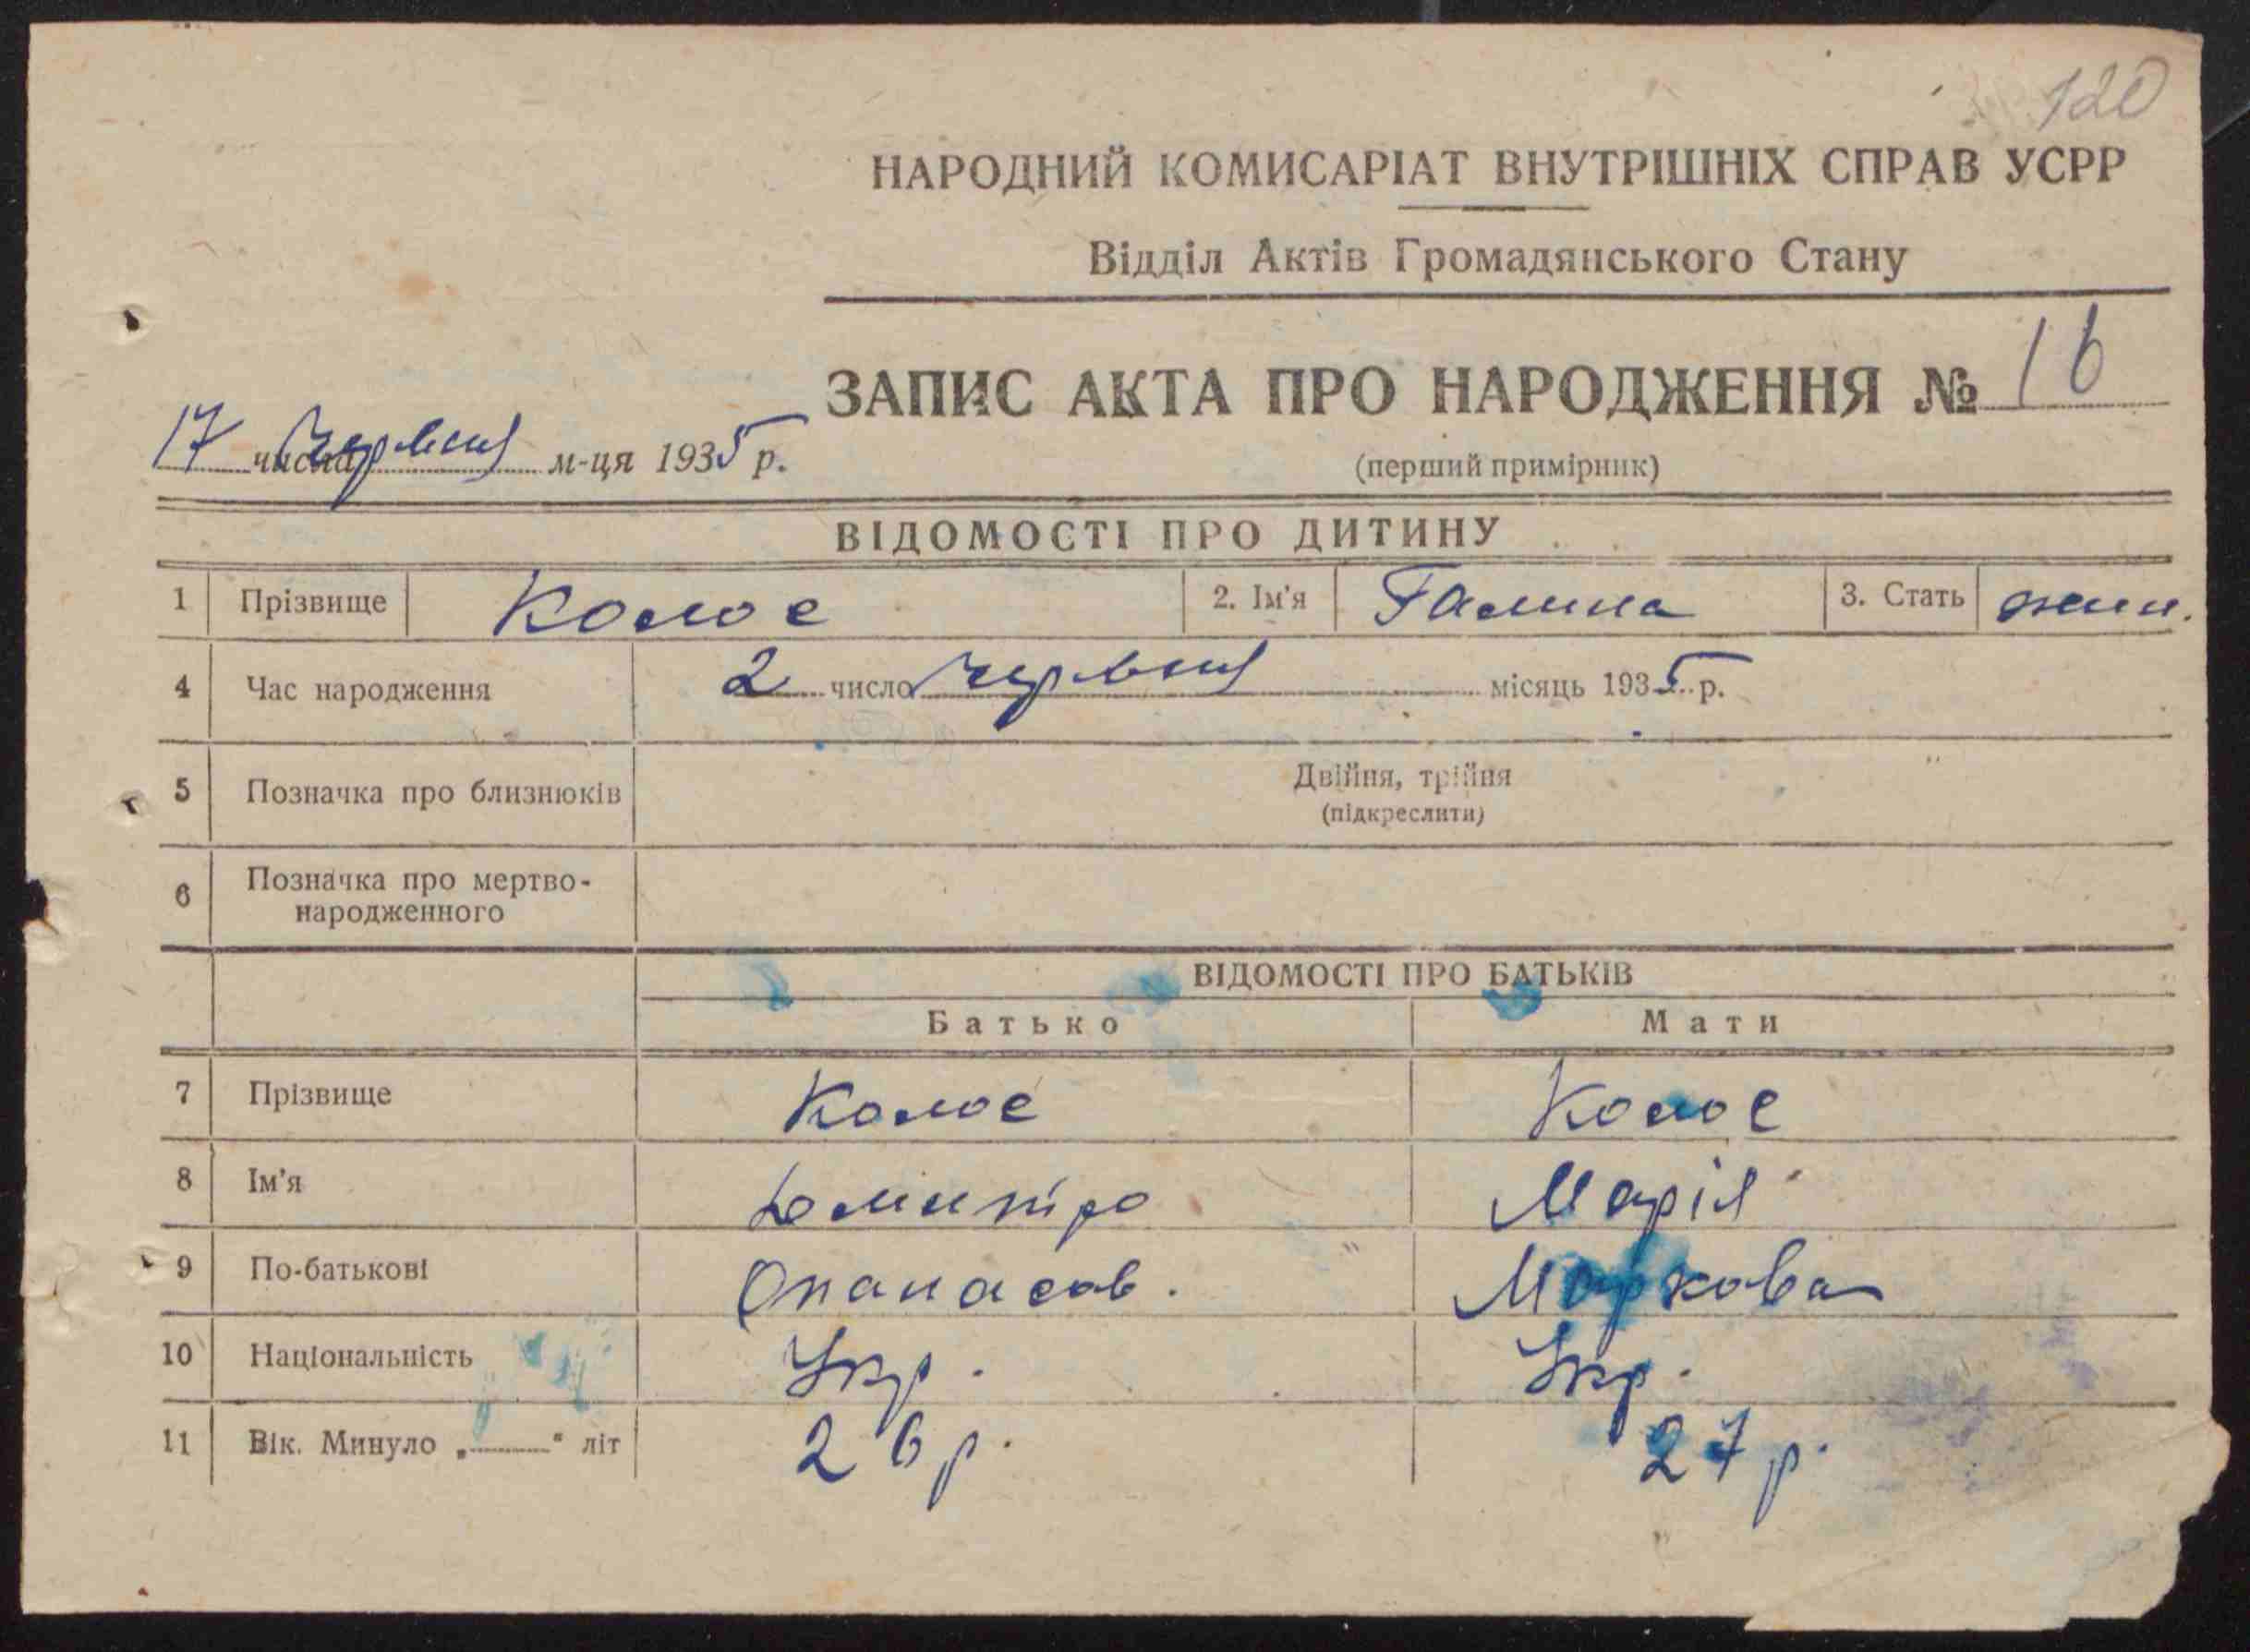 120
НАРОДНИЙ КОМИСАРІАТ ВНУТРІШНІХ СПРАВ УСРР
Відділ Актів Громадянського Стану
ЗАПИС АКТА ПРО НАРОДЖЕННЯ № 16
17 числа червня м-ця 1935 р.
(перший примірник)
ВІДОМОСТІ ПРО ДИТИНУ
1 Прізвище Колос 2. Ім'я Галина 3. Стать жін.
4 Час народження 2 число червня місяць 1935 р.
5 Позначка про близнюків Двійня, трійня
(підкреслити)
6 Позначка про мертво-
народженного
ВІДОМОСТІ ПРО БАТЬКІВ
Батько Мати
7 Прізвище Колос Колос
8 Ім'я Дмитро Марія
9 По-батькові Опанасов. Маркова
10 Національність Укр. Укр.
11 Вік. Минуло „ “ літ 26 р. 27 р.